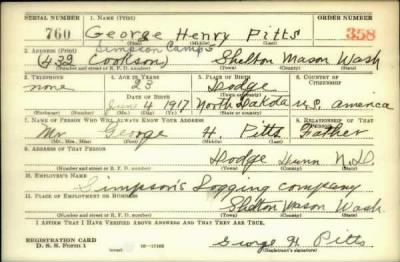 SERIAL NUMBER 1. NAME (Print) ORDER NUMBER
760 George Henry Pitts 358
(First) (Middle) (Last)
Simpson Camp
2. ADDRESS (Print)
(432 Cookson) Shelton Mason Wash
(Number and street or R. F. D. number) (Town) (County) (State)
3. TELEPHONE 4. AGE IN YEARS 5. PLACE OF BIRTH 6. COUNTRY OF CITIZENSHIP
none 23 Dodge
DATE OF BIRTH (Town or county)
June 4 1917 North Dakota U.S. america
(Exchange) (Number) (Mo.) (Day) (Yr.) (State or country)
7. NAME OF PERSON WHO WILL ALWAYS KNOW YOUR ADDRESS 8. RELATIONSHIP OF THAT PERSON
Mr George H. Pitts Father
(Mr., Mrs., Miss) (First) (Middle) (Last)
9. ADDRESS OF THAT PERSON
Dodge Dunn N.D.
(Number and street or R. F. D. number) (Town) (County) (State)
10. EMPLOYER'S NAME
Simpson's Logging Company
11. PLACE OF EMPLOYMENT OR BUSINESS
Shelton Mason Wash.
(Number and street or R. F. D. number) (Town) (County) (State)
I AFFIRM THAT I HAVE VERIFIED ABOVE ANSWERS AND THAT THEY ARE TRUE.
REGISTRATION CARD
D. S. S. Form 1 George H. Pitts
(Registrant's signature)